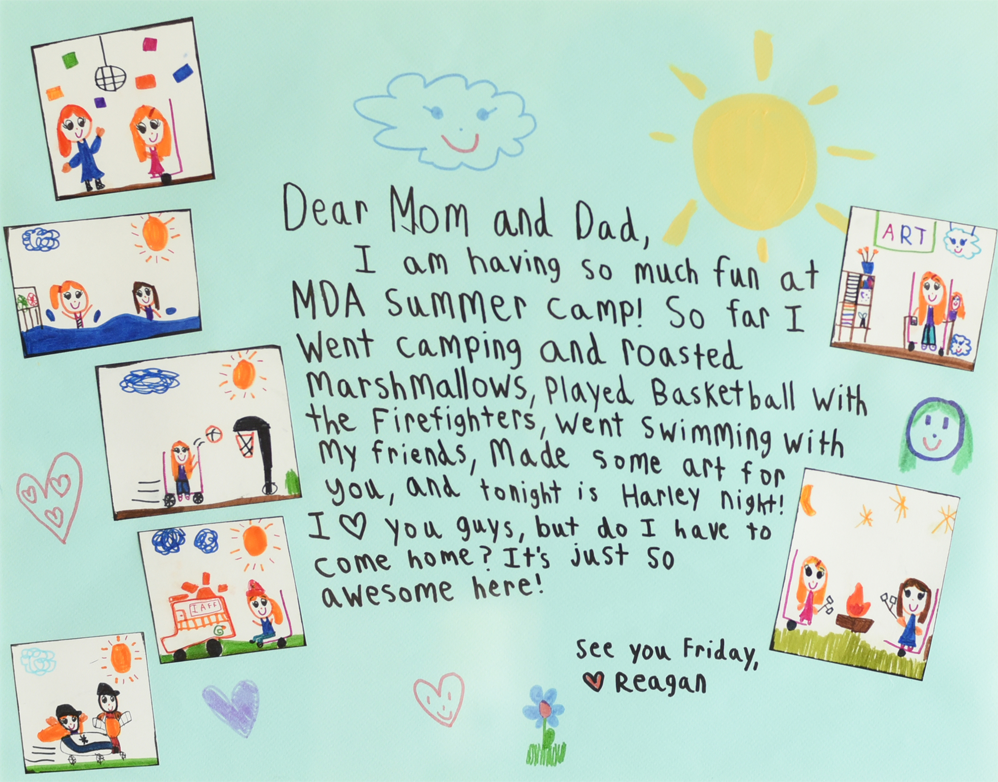 Dear Mom and Dad,
I am having so much fun at
MDA Summer Camp! So far I
Went camping and roasted
Marshmallows, Played Basketball with
the Firefighters, Went Swimming with
My friends, Made some art for
you, and tonight is Harley night!
I ♡ you guys, but do I have to
come home? It's just so
awesome here!
See you Friday,
♥ Reagan
ART